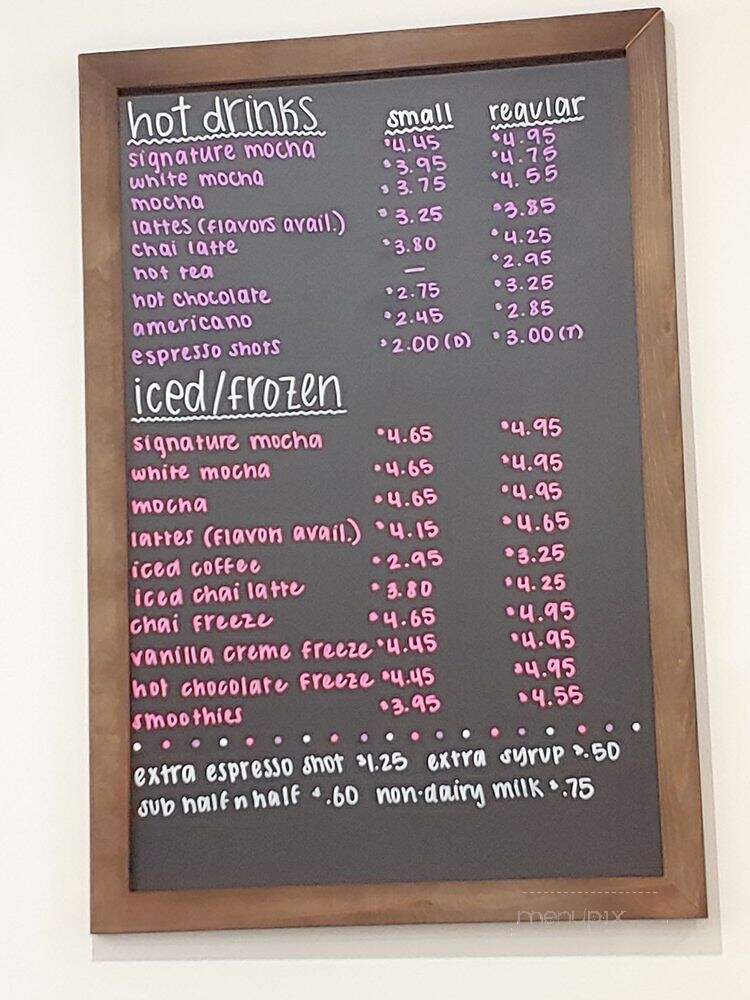 hot drinks small regular
signature mocha $4.45 $4.95
white mocha $3.95 $4.75
mocha $3.75 $4.55
lattes (flavors avail.) $3.25 $3.85
chai latte $3.80 $4.25
hot tea — $2.95
hot chocolate $2.75 $3.25
americano $2.45 $2.85
espresso shots $2.00 (D) $3.00 (T)
iced/frozen
signature mocha $4.65 $4.95
white mocha $4.65 $4.95
mocha $4.65 $4.95
lattes (flavors avail.) $4.15 $4.65
iced coffee $2.95 $3.25
iced chai latte $3.80 $4.25
chai freeze $4.65 $4.95
vanilla creme freeze $4.45 $4.95
hot chocolate freeze $4.45 $4.95
smoothies $3.95 $4.55
extra espresso shot $1.25 extra syrup $.50
sub half n half $.60 non-dairy milk $.75
menupix